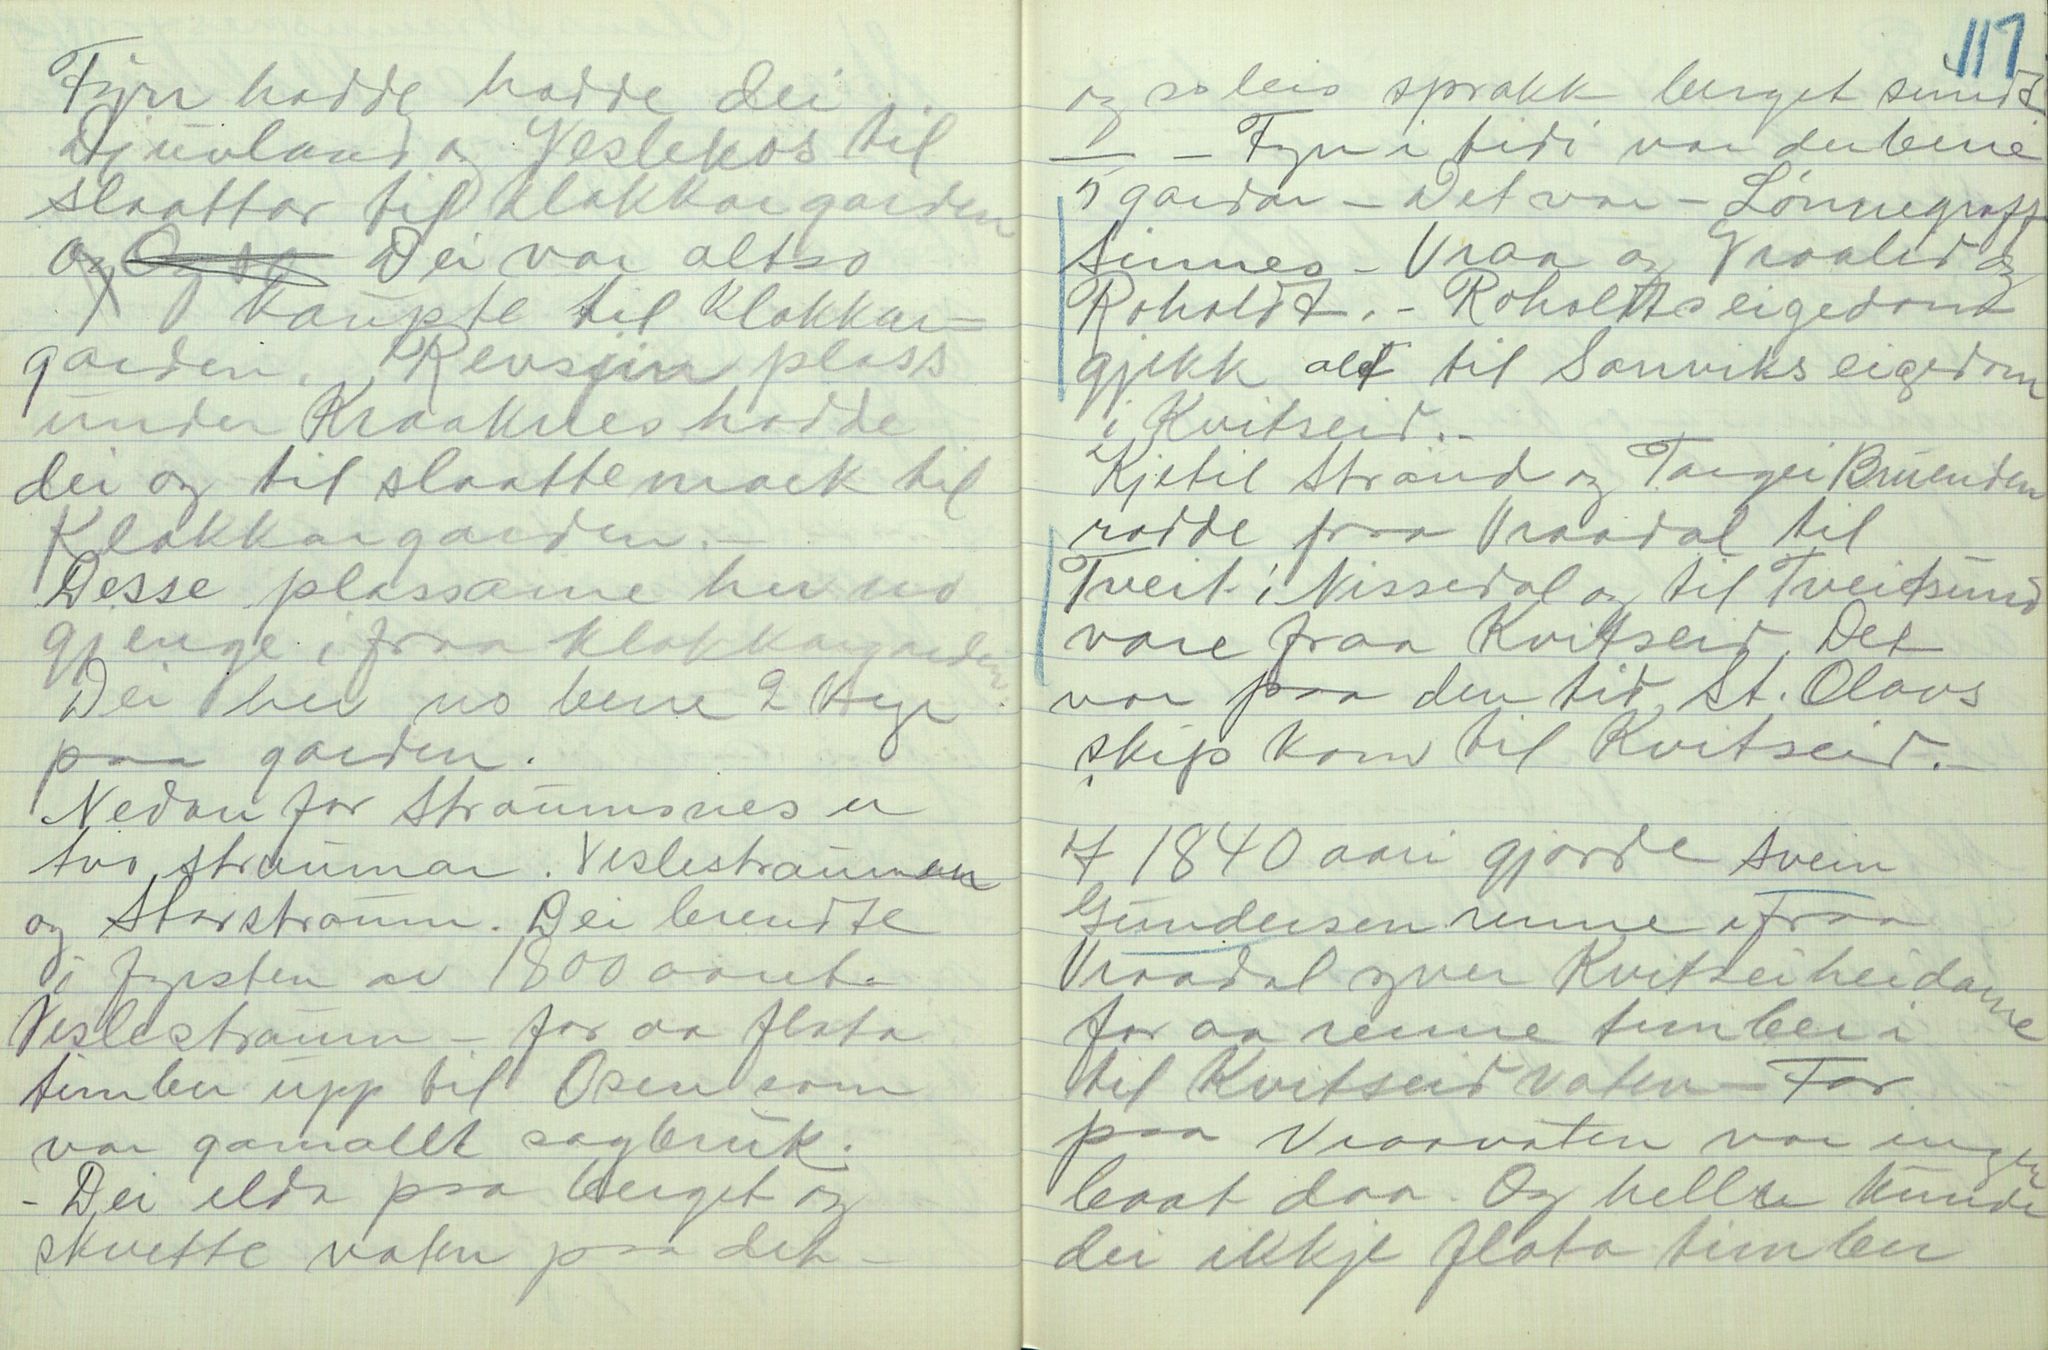 Fyrr hadde hadde dei
Djuvland og Veslekos til
slaattar til klokkargarden
og Dei var altso
kaupte til Klokkar-
garden. Revsjin plass
under Kraaknes hadde
dei og til slaattemark til
Klokkargarden.-
Desse plassane her no
gjenge ifraa klokkargarden
Dei her no bere 2 kyr
paa garden.
Nedan for Straumsnes er
tvo straumar. Veslestraumen
og Storstraum. Dei brendte
i fyrsten av 1800 aaret.
Veslestraum - for aa flota
timber upp til Osen som
var gamallt sagbruk.
- Dei elda paa berget og
skvette vaten paa det -
117
og soleis sprakk berget sundt
- Fyrr i tidi var der bere
5 gardar - Det var - Lønnegraff
Sinnes - Vraa og Vraalid og
Roholdt. - Roholdts eigedom
gjekk alt til Sanviks eigedom
i Kvitseid.-
Kjetil Strand og Targei Bruenden
rodde fraa Vraadal til
Tveit i Nissedal og til Tveitsund
vare fraa Kvitseid. Det
var paa den tid, St. Olavs
skip kom til Kvitseid.-
I 1840 aari gjorde Svein
Gundersen renne ifraa
Vraadal yver Kvitseiheidane
for aa renne timber i
til Kvitseidvaten - For
paa Vraavaten var ingen
baat daa. Og heller kunde
dei ikkje flota timber